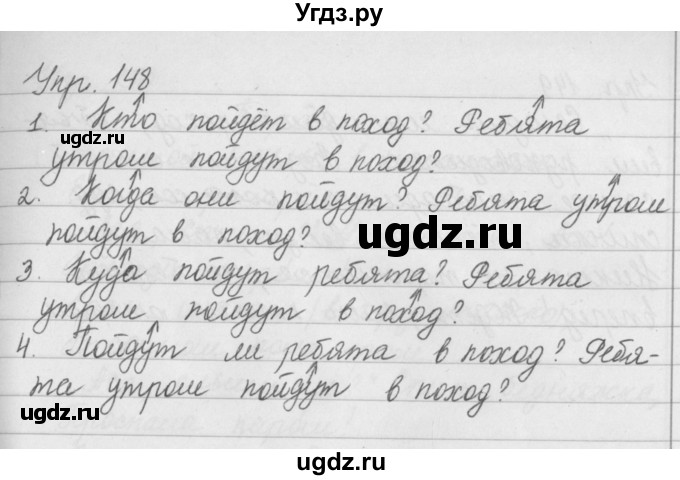 Угдз.ру
Упр. 148
1. Кто пойдёт в поход? Ребята
утром пойдут в поход?
2. Когда они пойдут? Ребята утром
пойдут в поход?
3. Куда пойдут ребята? Ребята
утром пойдут в поход?
4. Пойдут ли ребята в поход? Ребя-
та утром пойдут в поход?
ugdz.ru
ugdz.ru
ugdz.ru
ugdz.ru
ugdz.ru